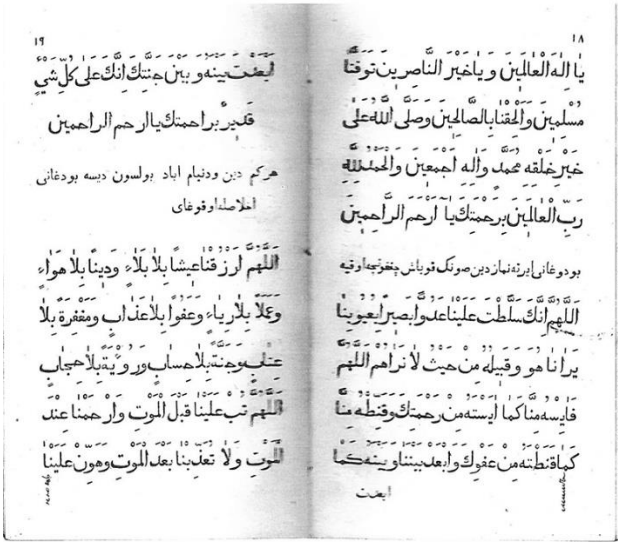 ١٨
يَا اِلٰهَ الْعَالَمِينَ وَيَا خَيْرَ النَّاصِرِينَ تَوَفَّنَا
مُسْلِمِينَ وَاَلْحِقْنَا بِالصَّالِحِينَ وَصَلَّى اللّٰهُ عَلٰى
خَيْرِ خَلْقِهِ مُحَمَّدٍ وَاٰلِهِ اَجْمَعِينَ وَالْحَمْدُ لِلّٰهِ
رَبِّ الْعَالَمِينَ بِرَحْمَتِكَ يَا اَرْحَمَ الرَّاحِمِينَ
بو دوغانى ايرته نماز دين صونك قوياش چقغونچه اوقيه
اَللّٰهُمَّ اِنَّكَ سَلَّطْتَ عَلَيْنَا عَدُوًّا بَصِيرًا بِعُيُوبِنَا
يَرَانَا هُوَ وَقَبِيلُهُ مِنْ حَيْثُ لَا نَرَاهُمْ اَللّٰهُمَّ
فَاٰيِسْهُ مِنَّا كَمَا اٰيَسْتَهُ مِنْ رَحْمَتِكَ وَقَنِّطْهُ مِنَّا
كَمَا قَنَّطْتَهُ مِنْ عَفْوِكَ وَابْعِدْ بَيْنَنَا وَبَيْنَهُ كَمَا
ابعدت
١٩
اَبْعَدْتَ بَيْنَهُ وَبَيْنَ جَنَّتِكَ اِنَّكَ عَلٰى كُلِّ شَيْءٍ
قَدِيرٌ بِرَحْمَتِكَ يَا ارحم الراحمين
هركم دين ودنيام اباد بولسون ديسه بو دغانى
اخلاصله اوقوغاى
اَللّٰهُمَّ ارْزُقْنَا عَيْشًا بِلَا بَلَاءٍ وَدِينًا بِلَا هَوَاءٍ
وَعَمَلًا بِلَا رِيَاءٍ وَعَفْوًا بِلَا عَذَابٍ وَمَغْفِرَةً بِلَا
عِتَابٍ وَجَنَّةً بِلَا حِسَابٍ وَرُؤْيَةً بِلَا حِجَابٍ
اَللّٰهُمَّ تُبْ عَلَيْنَا قَبْلَ الْمَوْتِ وَارْحَمْنَا عِنْدَ
الْمَوْتِ وَلَا تُعَذِّبْنَا بَعْدَ الْمَوْتِ وَهَوِّنْ عَلَيْنَا